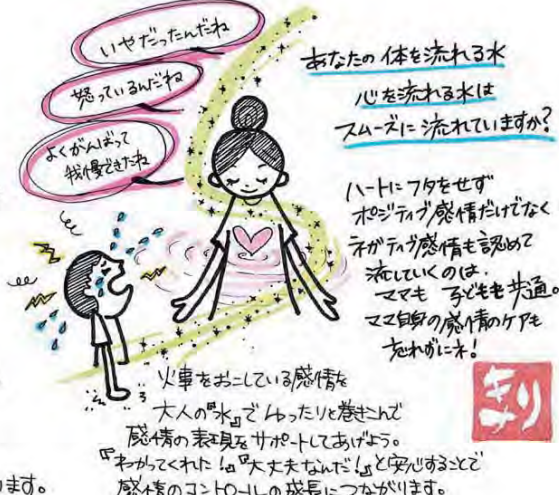 いやだったんだね
怒っているんだね
よくがんばって
我慢できたね
あなたの体を流れる水
心を流れる水は
スムーズに流れていますか?
ハートにフタをせず
ポジティブ感情だけでなく
ネガティブ感情も認めて
流していくのは、
ママも 子どもも共通。
ママ自身の感情のケアも
忘れずにネ!
火事をおこしている感情を
大人の『水』でゆったりと巻きこんで
感情の表現をサポートしてあげよう。
『わかってくれた!』『大丈夫なんだ!』と安心することで
感情のコントロールの成長につながります。
ります。